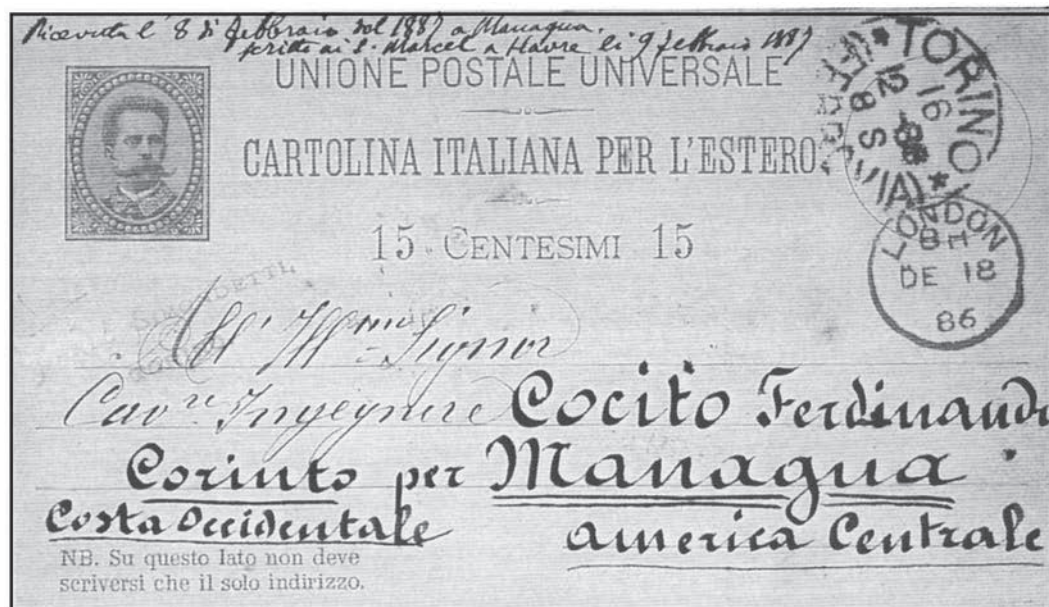 Ricevuta l' 8 di febbraio del 1887 a Managua.
scritto ai S. Marcel a Havre li 9 febbraio 1887
UNIONE POSTALE UNIVERSALE
CARTOLINA ITALIANA PER L'ESTERO
15 CENTESIMI 15
TORINO
16
12
86
8 S
LONDON
BM
DE 18
86
All' Ill.mo Signor
Cav.re Ingegnere Cocito Ferdinando
Corinto per Managua
Costa Occidentale america Centrale
NB. Su questo lato non deve
scriversi che il solo indirizzo.